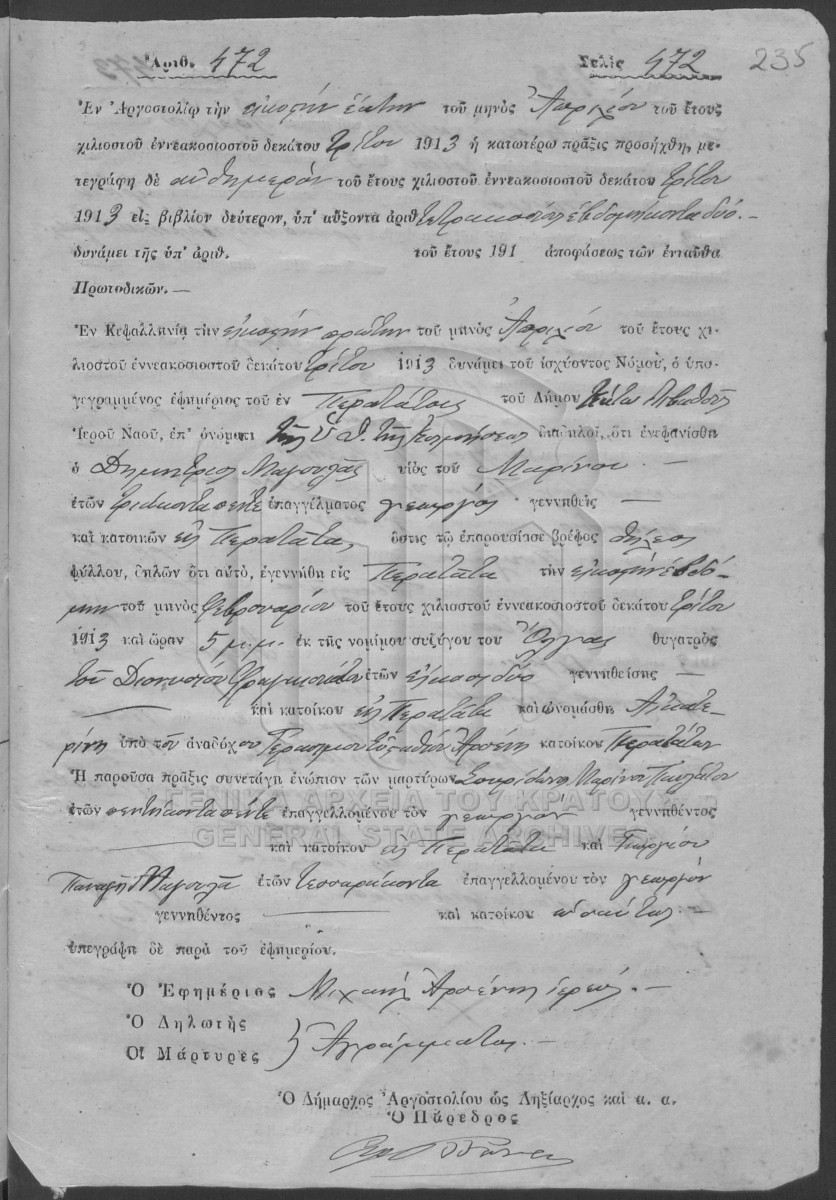 Ἀριθ. 472 Σελὶς 472 235
Ἐν Ἀργοστολίῳ τὴν εἰκοστὴν ἕκτην τοῦ μηνὸς Ἀπριλίου τοῦ ἔτους
χιλιοστοῦ ἐννεακοσιοστοῦ δεκάτου τρίτου 1913 ἡ κατωτέρω πρᾶξις προσήχθη, με-
τεγράφη δὲ αὐθημερὸν τοῦ ἔτους χιλιοστοῦ ἐννεακοσιοστοῦ δεκάτου τρίτου
1913 εἰς βιβλίον δεύτερον, ὑπ' αὔξοντα ἀριθ. τετρακόσια ἑβδομήκοντα δύο.—
δυνάμει τῆς ὑπ' ἀριθ. τοῦ ἔτους 191 ἀποφάσεως τῶν ἐνταῦθα
Πρωτοδικῶν.—
Ἐν Κεφαλληνίᾳ τὴν εἰκοστὴν πρώτην τοῦ μηνὸς Ἀπριλίου τοῦ ἔτους χι-
λιοστοῦ ἐννεακοσιοστοῦ δεκάτου τρίτου 1913 δυνάμει τοῦ ἰσχύοντος Νόμου, ὁ ὑπο-
γεγραμμένος ἐφημέριος τοῦ ἐν Περατάτοις τοῦ Δήμου Κάτω Λειβαθοῦς
Ἱεροῦ Ναοῦ, ἐπ' ὀνόματι τῆς Υ. Θ. τῆς Κοιμήσεως διαδηλοῖ, ὅτι ἐνεφανίσθη
ὁ Δημήτριος Μαγουλᾶς υἱὸς τοῦ Μαρίνου —
ἐτῶν τριάκοντα πέντε ἐπαγγέλματος γεωργὸς γεννηθεὶς —
καὶ κατοικῶν εἰς Περατάτα, ὅστις τῷ ἐπαρουσίασε βρέφος θήλεος
φύλλου, δηλῶν ὅτι αὐτό, ἐγεννήθη εἰς Περατάτα τὴν εἰκοστὴν ἑβδό-
μην τοῦ μηνὸς Φεβρουαρίου τοῦ ἔτους χιλιοστοῦ ἐννεακοσιοστοῦ δεκάτου τρίτου
1913 καὶ ὥραν 5 μ.μ. ἐκ τῆς νομίμου συζύγου του Ὄλγας θυγατρὸς
τοῦ Διονυσίου Φραγκισκάτου ἐτῶν εἴκοσι δύο γεννηθείσης —
— καὶ κατοίκου εἰς Περατάτα καὶ ὠνομάσθη Αἰκατε-
ρίνη ὑπὸ τοῦ ἀναδόχου Γερασίμου Εὐσταθίου Ἀρσένη κατοίκου Περατάτων
Ἡ παροῦσα πρᾶξις συνετάγη ἐνώπιον τῶν μαρτύρων Σπυρίδωνος Μαρίνου Παυλάτου
ἐτῶν πεντήκοντα πέντε ἐπαγγελλομένου τὸν γεωργὸν γεννηθέντος
— καὶ κατοίκου εἰς Περατάτα καὶ Γεωργίου
Παναγῆ Μαγουλᾶ ἐτῶν τεσσαράκοντα ἐπαγγελλομένου τὸν γεωργὸν
γεννηθέντος — καὶ κατοίκου ὡσαύτως.—
ὑπεγράφη δὲ παρὰ τοῦ ἐφημερίου.
Ὁ Ἐφημέριος Μιχαὴλ Ἀρσένης ἱερεύς.—
Ὁ Δηλωτὴς
Οἱ Μάρτυρες } Ἀγράμματοι.—
Ὁ Δήμαρχος Ἀργοστολίου ὡς Ληξίαρχος καὶ α. α.
Ὁ Πάρεδρος
ΓΕΝΙΚΑ ΑΡΧΕΙΑ ΤΟΥ ΚΡΑΤΟΥΣ
GENERAL STATE ARCHIVES